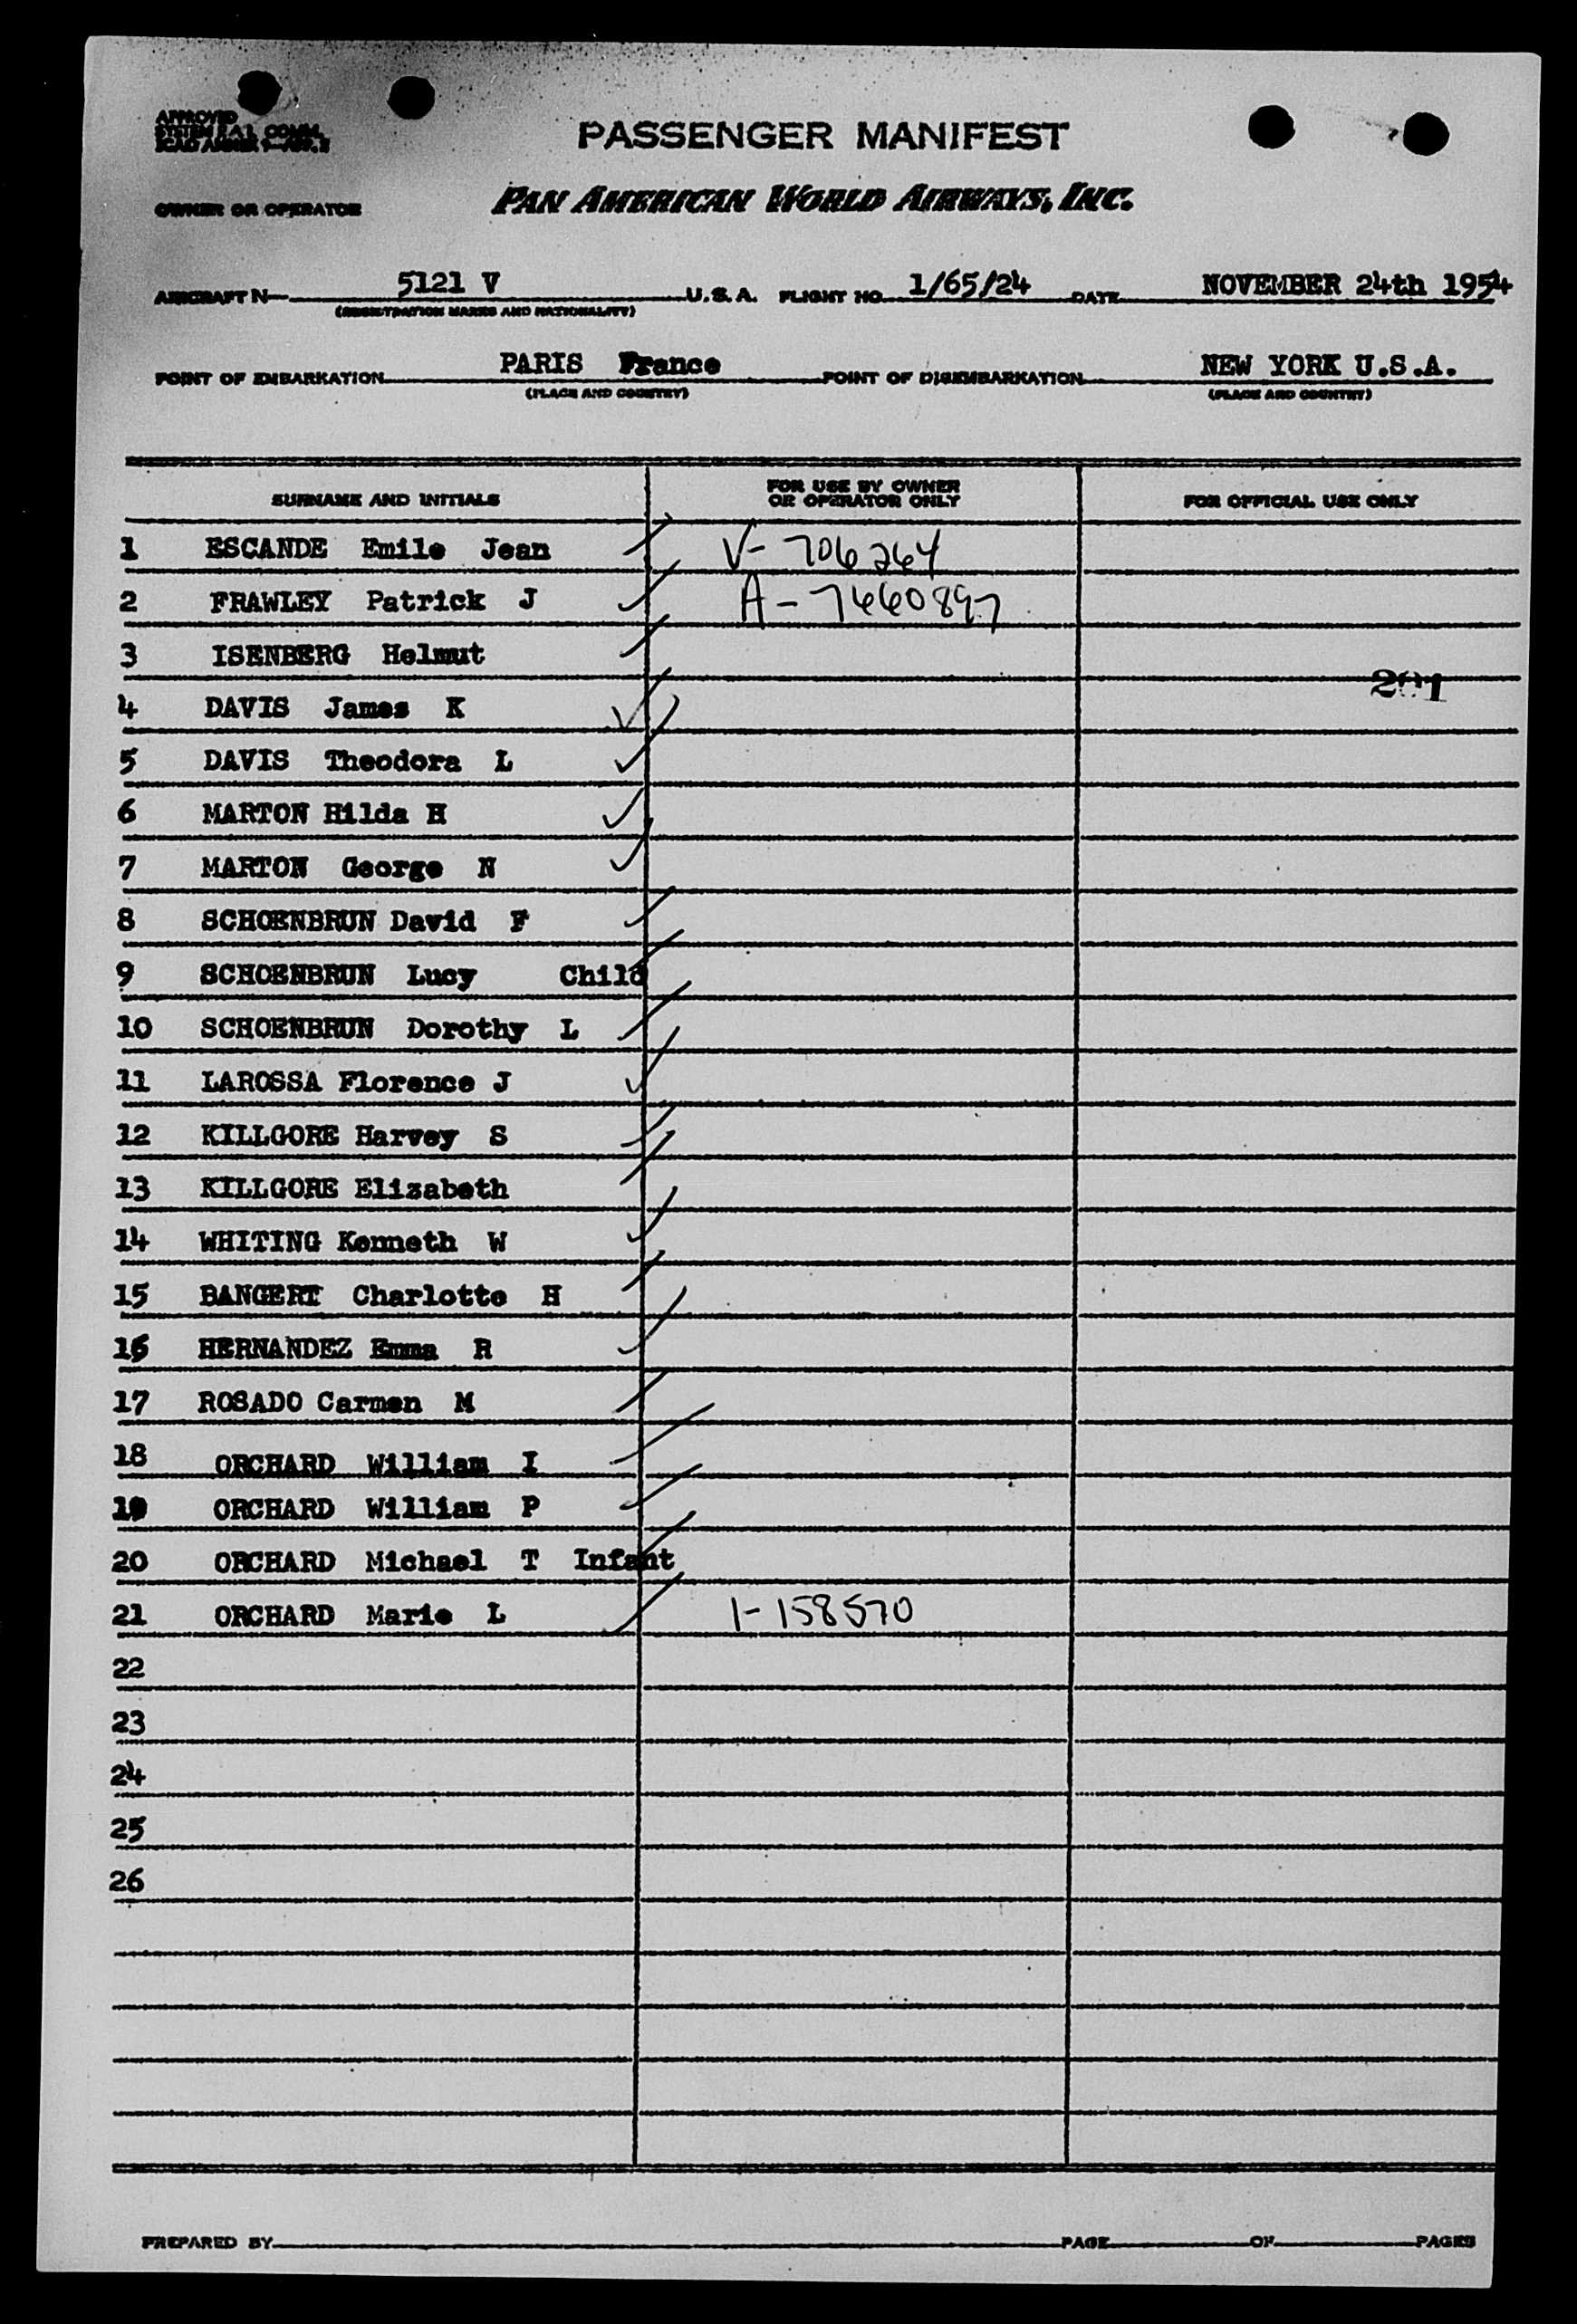 APPROVED
SYSTEM F.A.L. COMM.
ICAO ANNEX 9—APP. 2
PASSENGER MANIFEST
OWNER OR OPERATOR PAN AMERICAN WORLD AIRWAYS, INC.
AIRCRAFT N— 5121 V U.S.A. FLIGHT NO. 1/65/24 DATE NOVEMBER 24th 1954
(REGISTRATION MARKS AND NATIONALITY)
POINT OF EMBARKATION PARIS France POINT OF DISEMBARKATION NEW YORK U.S.A.
(PLACE AND COUNTRY) (PLACE AND COUNTRY)
SURNAME AND INITIALS FOR USE BY OWNER OR OPERATOR ONLY FOR OFFICIAL USE ONLY
1 ESCANDE Emile Jean V- 706264
2 FRAWLEY Patrick J A-7660897
3 ISENBERG Helmut
201
4 DAVIS James K
5 DAVIS Theodora L
6 MARTON Hilda H
7 MARTON George N
8 SCHOENBRUN David F
9 SCHOENBRUN Lucy Child
10 SCHOENBRUN Dorothy L
11 LAROSSA Florence J
12 KILLGORE Harvey S
13 KILLGORE Elizabeth
14 WHITING Kenneth W
15 BANGERT Charlotte H
16 HERNANDEZ Emma R
17 ROSADO Carmen M
18 ORCHARD William I
19 ORCHARD William P
20 ORCHARD Michael T Infant
21 ORCHARD Marie L 1-158570
22
23
24
25
26
PREPARED BY PAGE OF PAGES